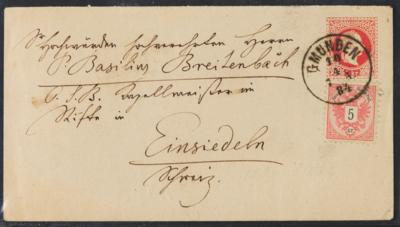 Sr Hochwürden hochverehrten Herrn
P. Basilius Breitenbach
O. S. B. Capellmeister im
Stifte in
Einsiedeln
Schweiz.
GMUNDEN
84
5